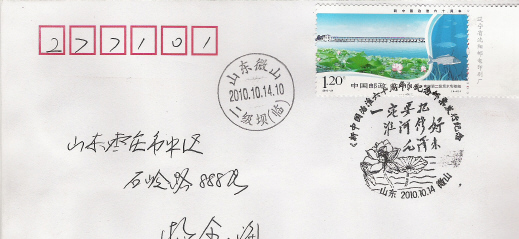 277101
新中国治淮六十周年
1.20元
中国邮政 CHINA
山东微山
2010.10.14.10
二级坝(临)
《新中国治淮六十周年》纪念邮票发行纪念
一定要把
淮河修好
毛泽东
山东 2010.10.14 微山
山东枣庄市中区
石岭路888号